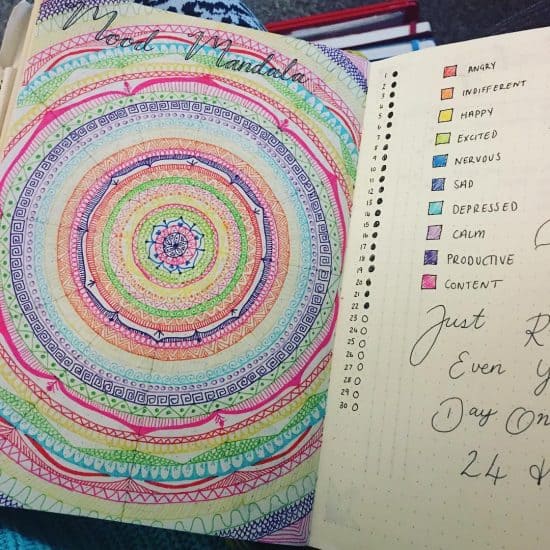 Mood Mandala
1
2
3
4
5
6
7
8
9
10
11
12
13
14
15
16
17
18
19
20
21
22
23
24
25
26
27
28
29
30
ANGRY
INDIFFERENT
HAPPY
EXCITED
NERVOUS
SAD
DEPRESSED
CALM
PRODUCTIVE
CONTENT
Just
Even
Day
24